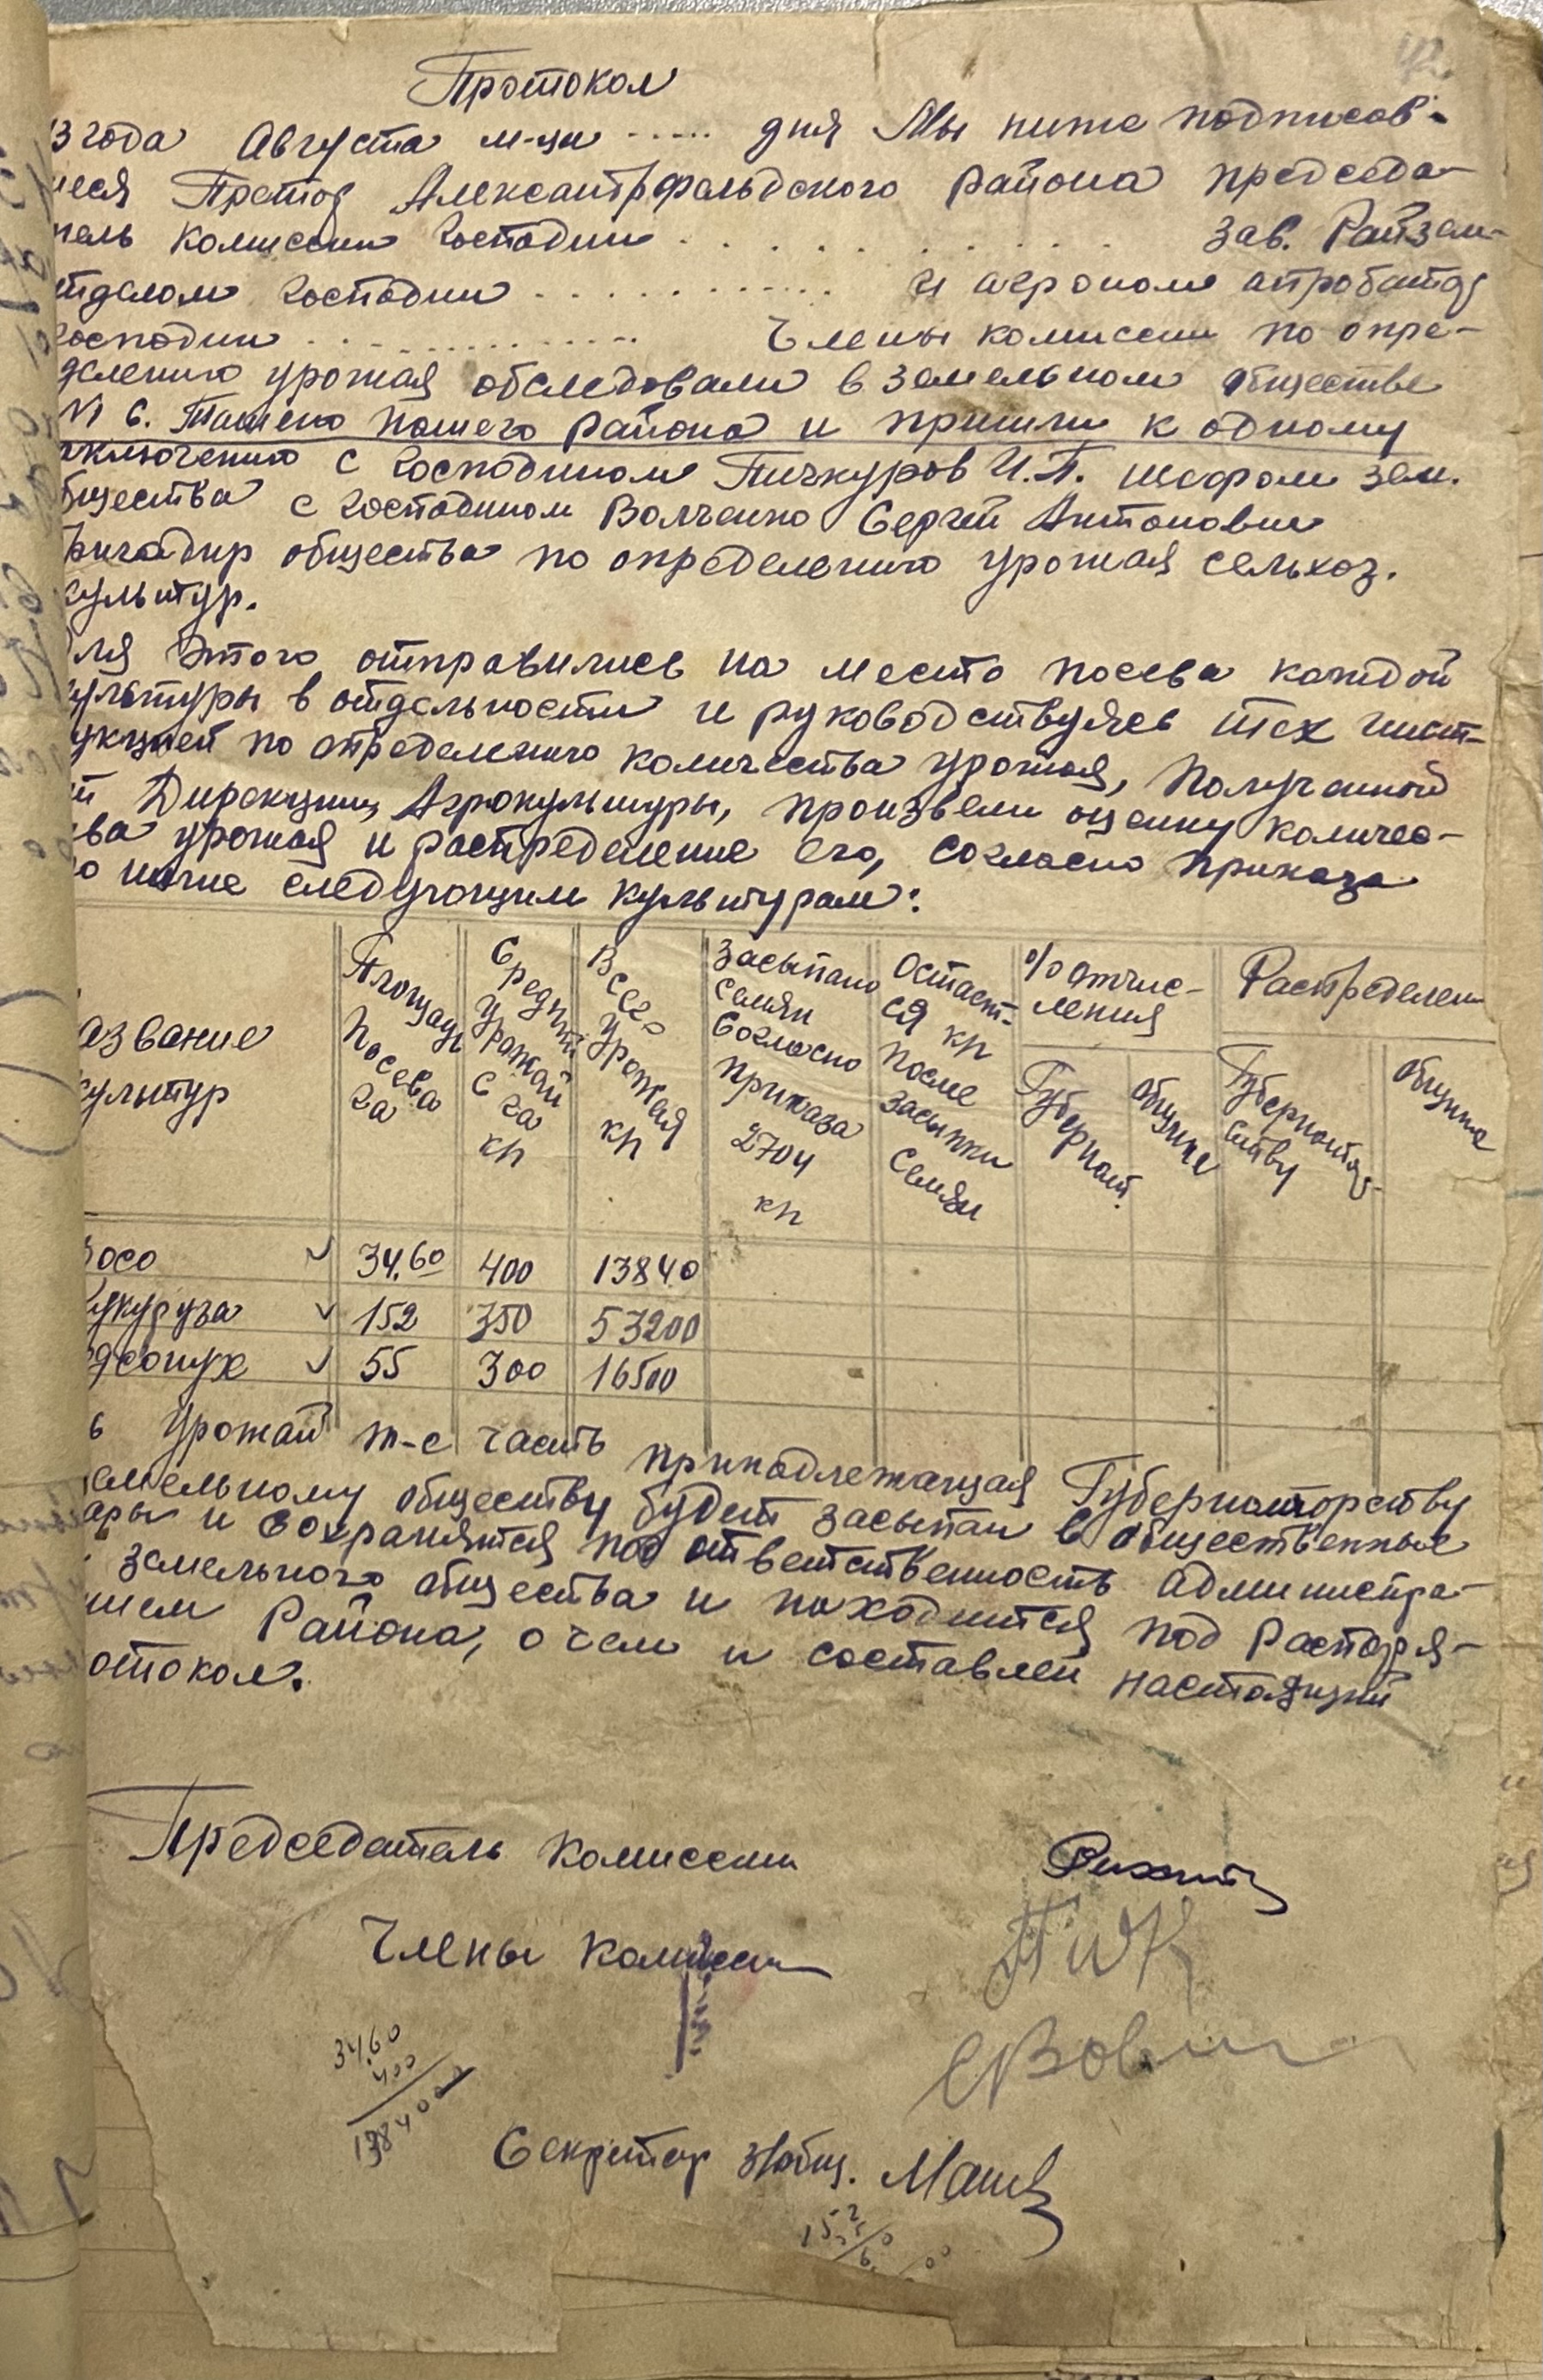 Протокол
3 года Августа м-ци ..... дня Мы ниже подписав-
иеся Претор Александрфельдского района председа-
тель комиссии Господин . . . . . . . . . . зав. Райзем-
тделом Господин . . . . . . . . . . и агроном апробатор
Господин . . . . . . . . . . . . Члены комиссии по опре-
делению урожая обследовали в земельном обществе
N 6. нашего района и пришли к одному
аключению с Господином Пичкуров И.П. шефом зем.
бщества с Господином Волченко Сергей Антонович
бригадир общества по определению урожая сельхоз.
культур.
Для этого отправились на место посева каждой
культуры в отдельности и руководствуясь тех инст-
укцией по определению количества урожая, полученной
от Дирекции, Агрокультуры, произвели оценку количес-
ва урожая и распределение его, согласно приказа
по ниже следующим культурам:
азвание культур
Площадь посева га
Средний урожай с га кг
Всего урожая кг
Засыпано семян согласно приказа 2704 кг
Остает-ся кг после засыпки семян
% отчис-ления
Губернат. общине
Распределен
Губернатор-ству
общине
росо ✓ 34,60 400 13840
укуруза ✓ 152 350 53200
дсонух ✓ 55 300 16500
ь урожай т-е часть принадлежащая Губернаторству
емельному обществу будет засыпан в общественные
ары и сохранятся под ответственность администра-
земельного общества и находится под распоря-
нием Района, о чем и составлен настоящий
отокол.
Председатель комиссии
Члены комиссии
34.60
400
13840
Секретар